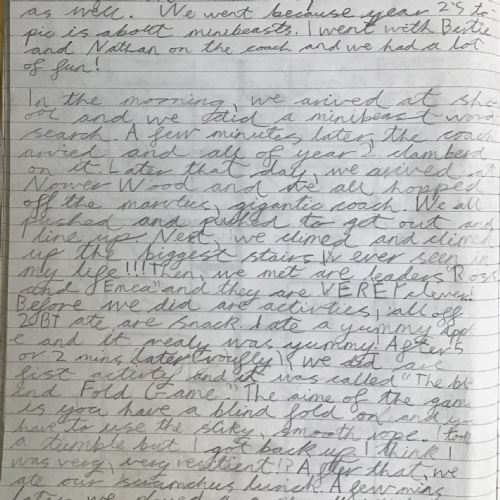 as well. We went because year 2's to-
pic is about minibeasts. I went with Bertie
and Nathan on the coach and we had a lot
of fun!
In the morning, we arived at sho
ool and we did a minibeast word
search. A few minutes later, the coach
arived and all of year 2 clamberd
on it. Later that day, we arived at
Nower Wood and we all hopped
off the marvlus, gigantic coach. We all
pushed and pushed to get out and
line up. Next, we climed and climed
up the biggest stairs Iv ever seen in
my life!!! Then, we met are leaders "Rosh
and "Emea" and they are VEREY clever.
Before we did are activties, all off
2BT ate are snack. I ate a yummy appl
e and it realy was yummy. After 5
or 2 mins later (roufly), we did are
fist activty and it was called "The bl-
ind Fold Game." The aime of the game
is you have a blind fold on and you
have to use the sliky, smooth rope. I took
a tumble but I got back up. I think I
was very, very resilient!? After that, we
ate our lunch. A few mins